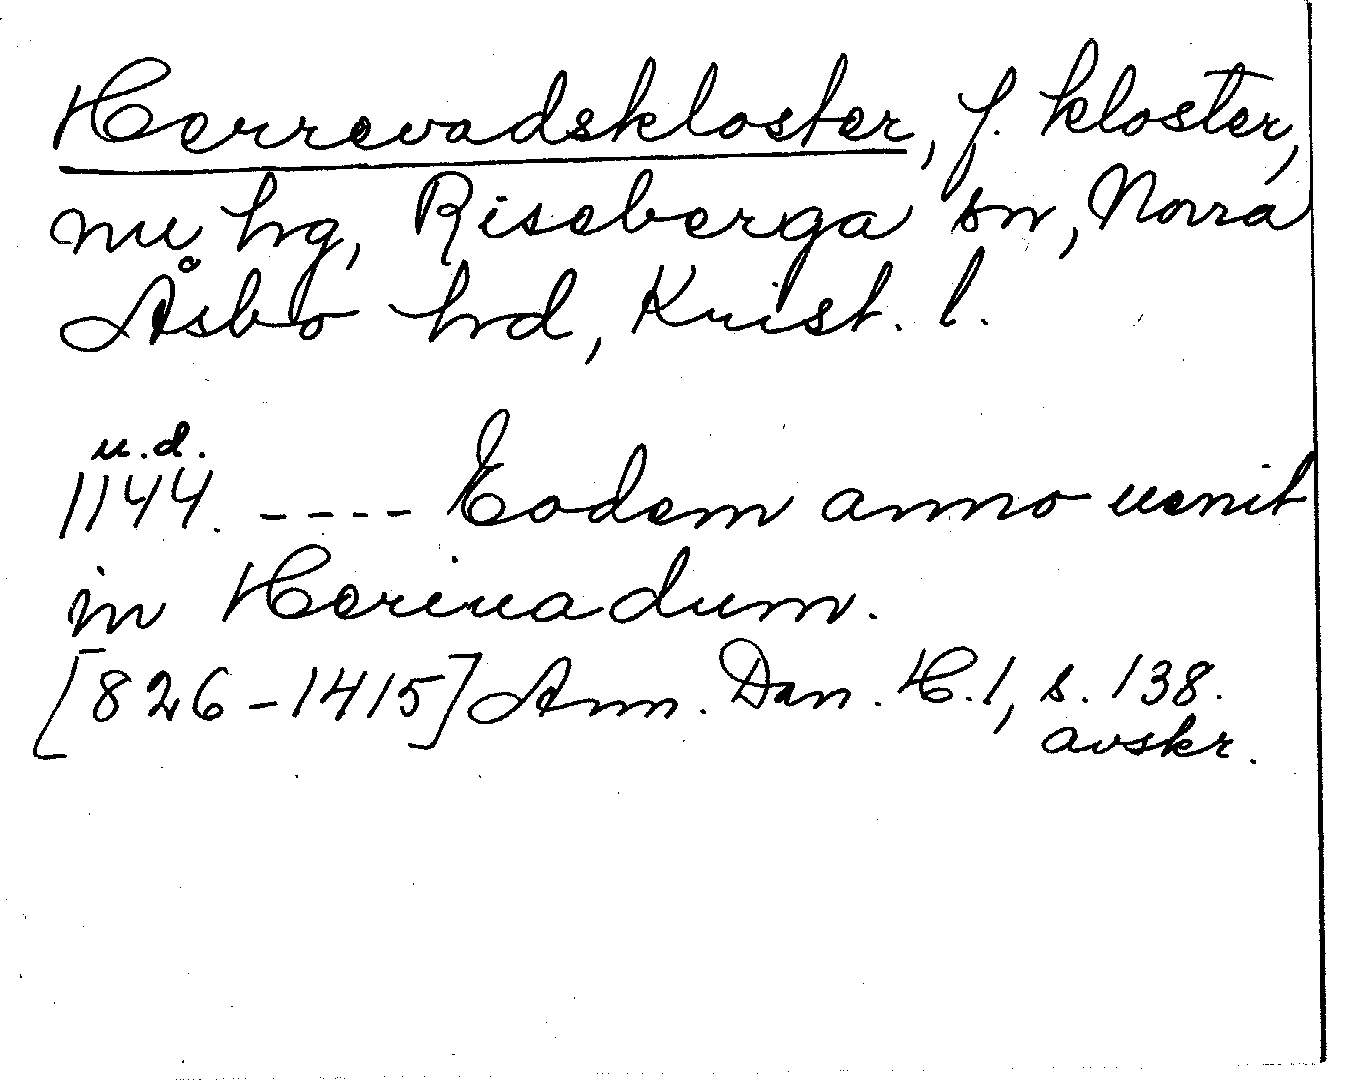 Herrevadskloster, f. kloster,
nu hg, Riseberga sn, Norra
Åsbo hrd, Krist. l.
u.d.
1144. ---- Eodem anno uenit
in Heriuadum.
[826-1415] Ann. Dan. H.1, s. 138.
avskr.